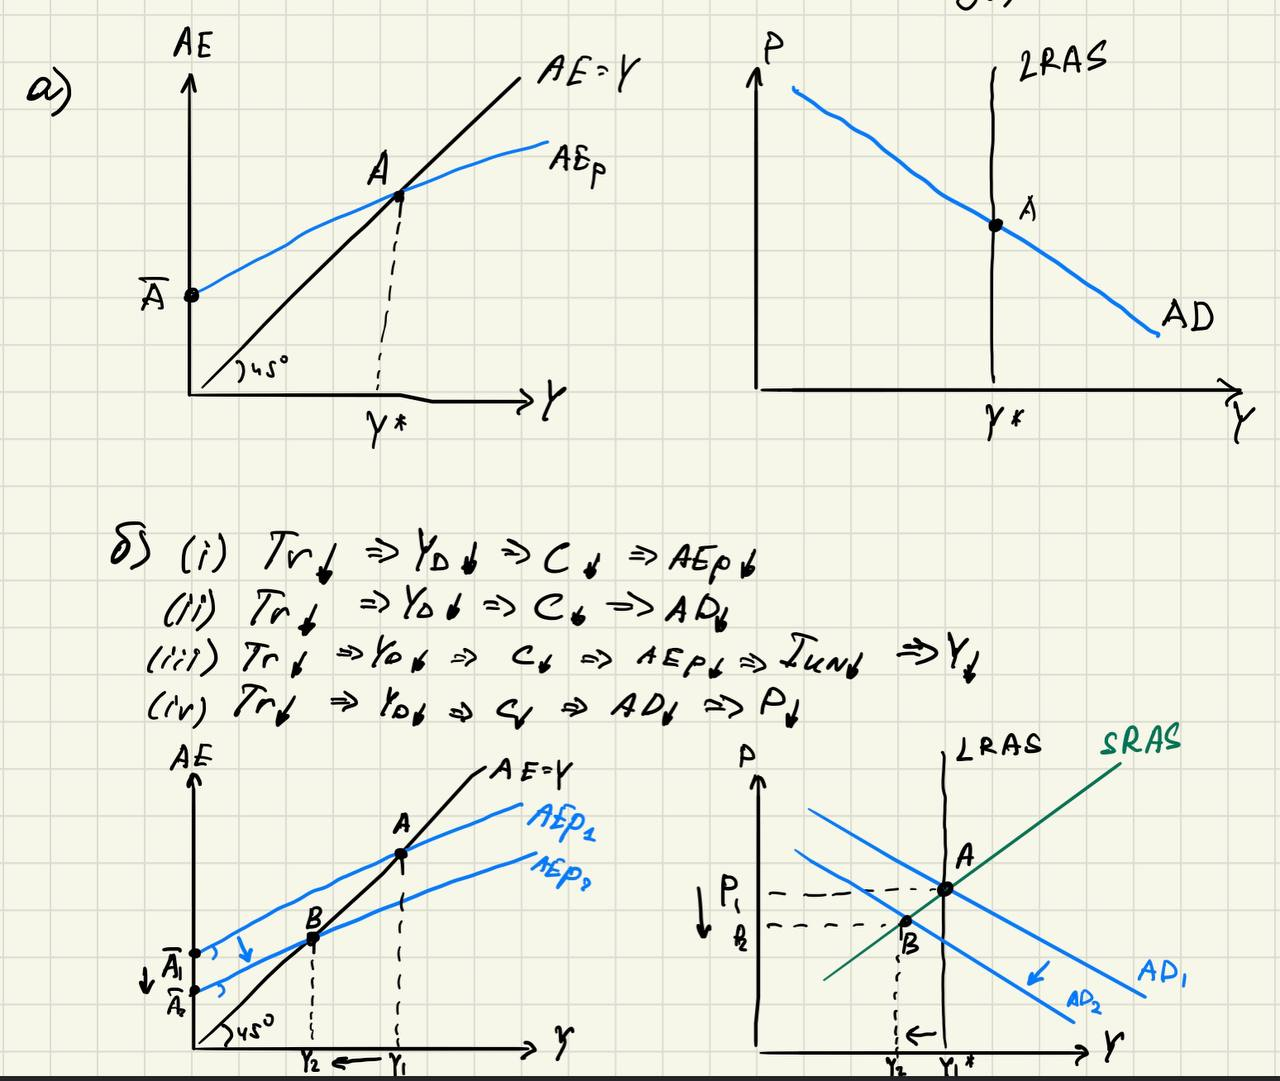 a)
AE
AE=Y
A
AEp
Ā
)45°
Y*
Y
P
LRAS
A
AD
Y*
Y
δ) (i) Tr↓ ⇒ YD↓ ⇒ C↓ ⇒ AEp↓
(ii) Tr↓ ⇒ YD↓ ⇒ C↓ ⇒ AD↓
(iii) Tr↓ ⇒ YD↓ ⇒ C↓ ⇒ AEp↓ ⇒ Iun↓ ⇒ Y↓
(iv) Tr↓ ⇒ YD↓ ⇒ C↓ ⇒ AD↓ ⇒ P↓
AE
AE=Y
AEp1
A
AEp2
B
Ā1
↓
Ā2
)45°
Y2 ← Y1
Y
P
LRAS
SRAS
A
↓ P1
P2
B
AD1
AD2
←
Y2
Y1*
Y